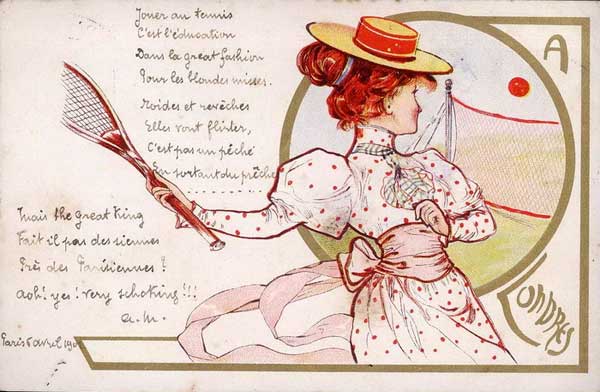 Jouer au tennis
C'est l'éducation
Dans la great fashion
Pour les blondes misses.
Roides et revêches
Elles vont flirter,
C'est pas un péché
En sortant du prêche
Mais the great King
Fait il pas des siennes
Près des Parisiennes ?
aoh! yes! very schoking !!!
a.m.
Paris 6 avril
A
LONDRES